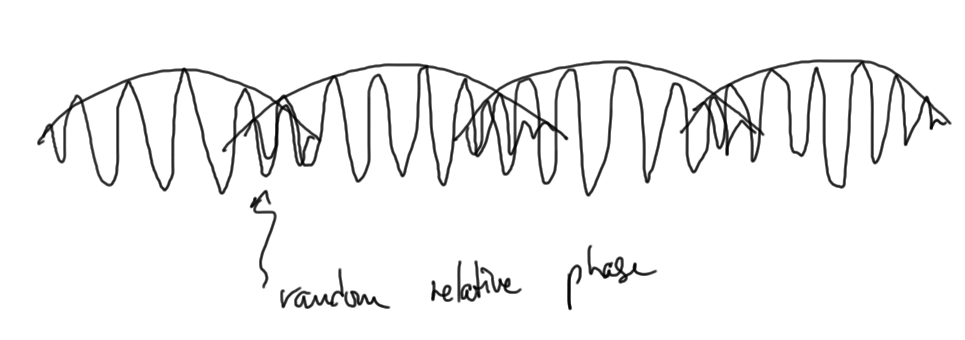 random relative phase